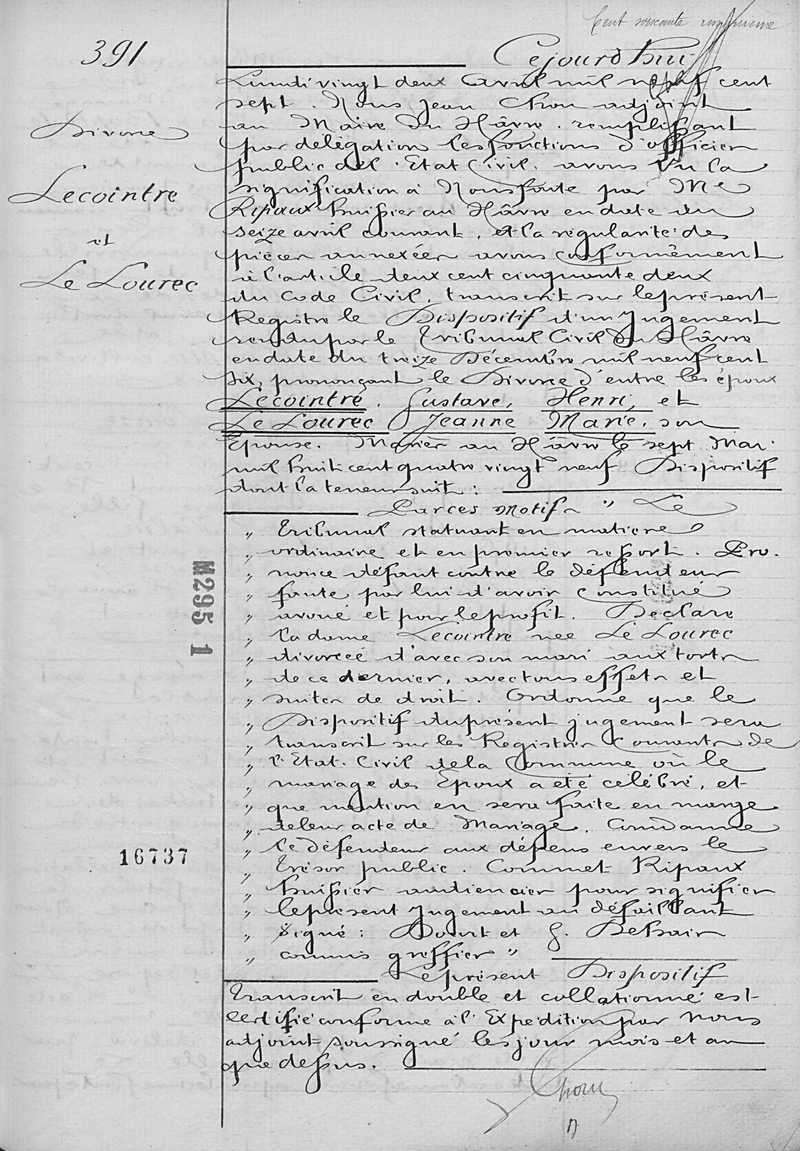 Cent soixante
391
Cejourd'hui
Lundi vingt deux Avril mil neuf cent
sept. Nous Jean Chou adjoint
au Maire du Hâvre. remplissant
par délégation les fonctions d'officier
public de l'Etat Civil. avons vu la
signification à Nous faite par Me
Ripaux huissier au Hâvre en date du
seize avril courant, et la régularité des
pièces annexées avons conformément
à l'article deux cent cinquante deux
du Code Civil, transcrit sur le présent
Registre le Dispositif d'un Jugement
rendu par le Tribunal Civil du Hâvre
en date du treize Décembre mil neuf cent
six, prononçant le Divorce d'entre les époux
Lecointre. Gustave, Henri, et
Le Lourec Jeanne Marie, son
Epouse. Mariés au Hâvre le sept Mai
mil huit cent quatre vingt neuf Dispositif
dont la teneur suit :
Divorce
Lecointre
et
Le Lourec
Par ces Motifs " Le
" Tribunal statuant en matière
" ordinaire et en premier ressort. Pro-
" nonce défaut contre le défendeur
" faute par lui d'avoir constitué
" avoué et pour le profit. Déclare
" la dame Lecointre née Le Lourec
" divorcée d'avec son mari aux torts
" de ce dernier, avec tous effets et
" suites de droit. Ordonne que le
" Dispositif du présent jugement sera
" transcrit sur les Registres Courants de
" l'Etat-Civil de la Commune où le
" mariage des Epoux a été célébré, et
" que mention en sera faite en marge
" de leur acte de Mariage. Condamne
" le défendeur aux dépens envers le
" Trésor public. Commet Ripaux
" huissier audiencier pour signifier
" le présent Jugement au défaillant
" Signé : et G.
" commis greffier "
M295 1
16737
Le présent Dispositif
Transcrit en double et collationné est
certifié conforme à l'Expédition par Nous
adjoint soussigné les jour mois et an
que dessus.
Chou